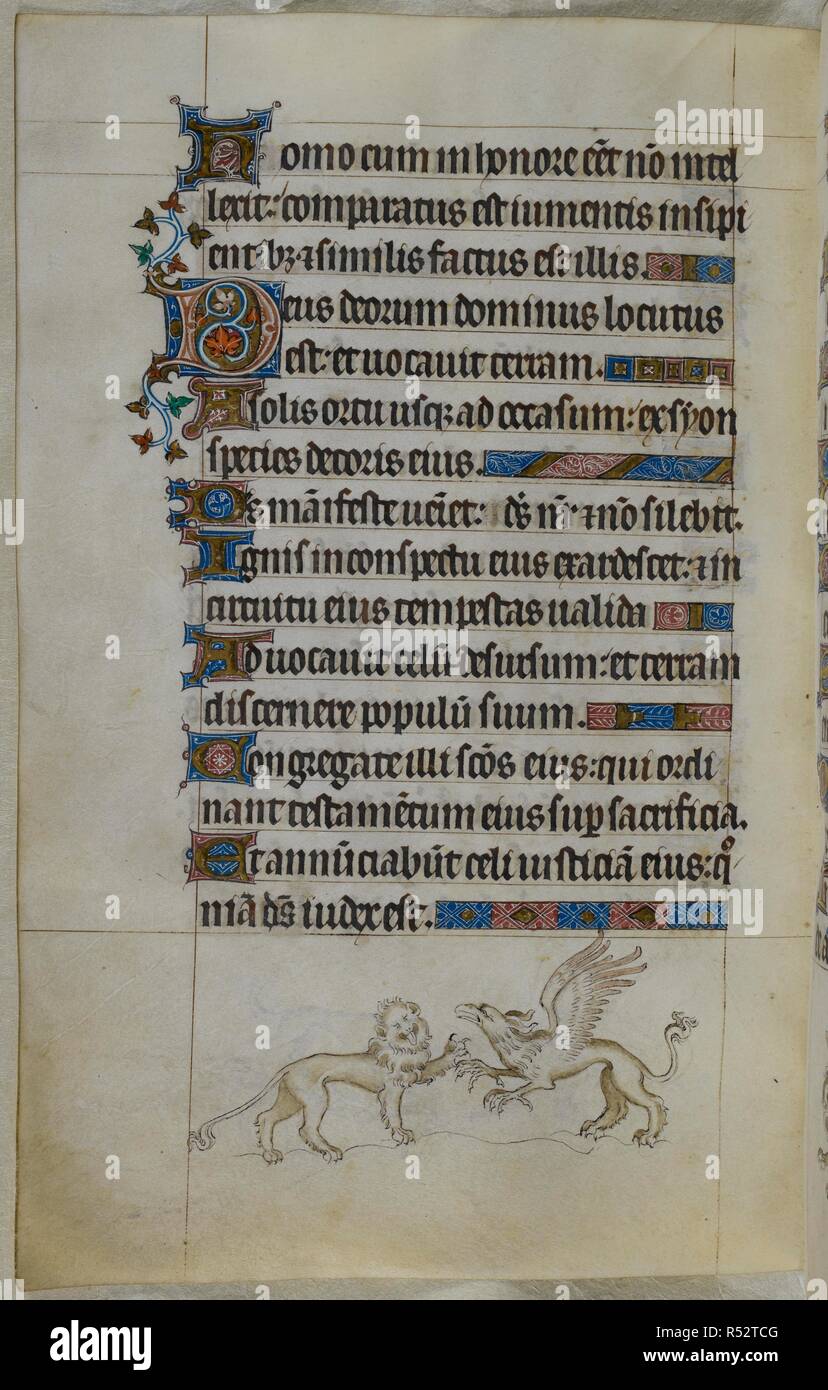 Homo cum in honore eēt nō intel
lexit: comparatus est iumentis insipi
entibꝫ ⁊ similis factus est illis.
Deus deorum dominus locutus
est: et uocauit terram.
A solis ortu usqꝫ ad occasum: ex syon
species decoris eius.
Ds māifeste ueīet: ds̄ nr̄ ⁊ nō silebit.
Ignis in conspectu eius exardescet: ⁊ in
circuitu eius tempestas ualida
Aduocauit celū desursum: et terram
discernere populū suum.
Congregate illi scōs eius: qui ordi
nant testamētum eius sup sacrificia.
Et annūciabūt celi iusticiā eius: qo
niā ds̄ iudex est.
alamy
alamy
a
a
a
a
alamy
Image ID: R52TCG
www.alamy.com